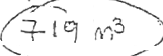 719 m³